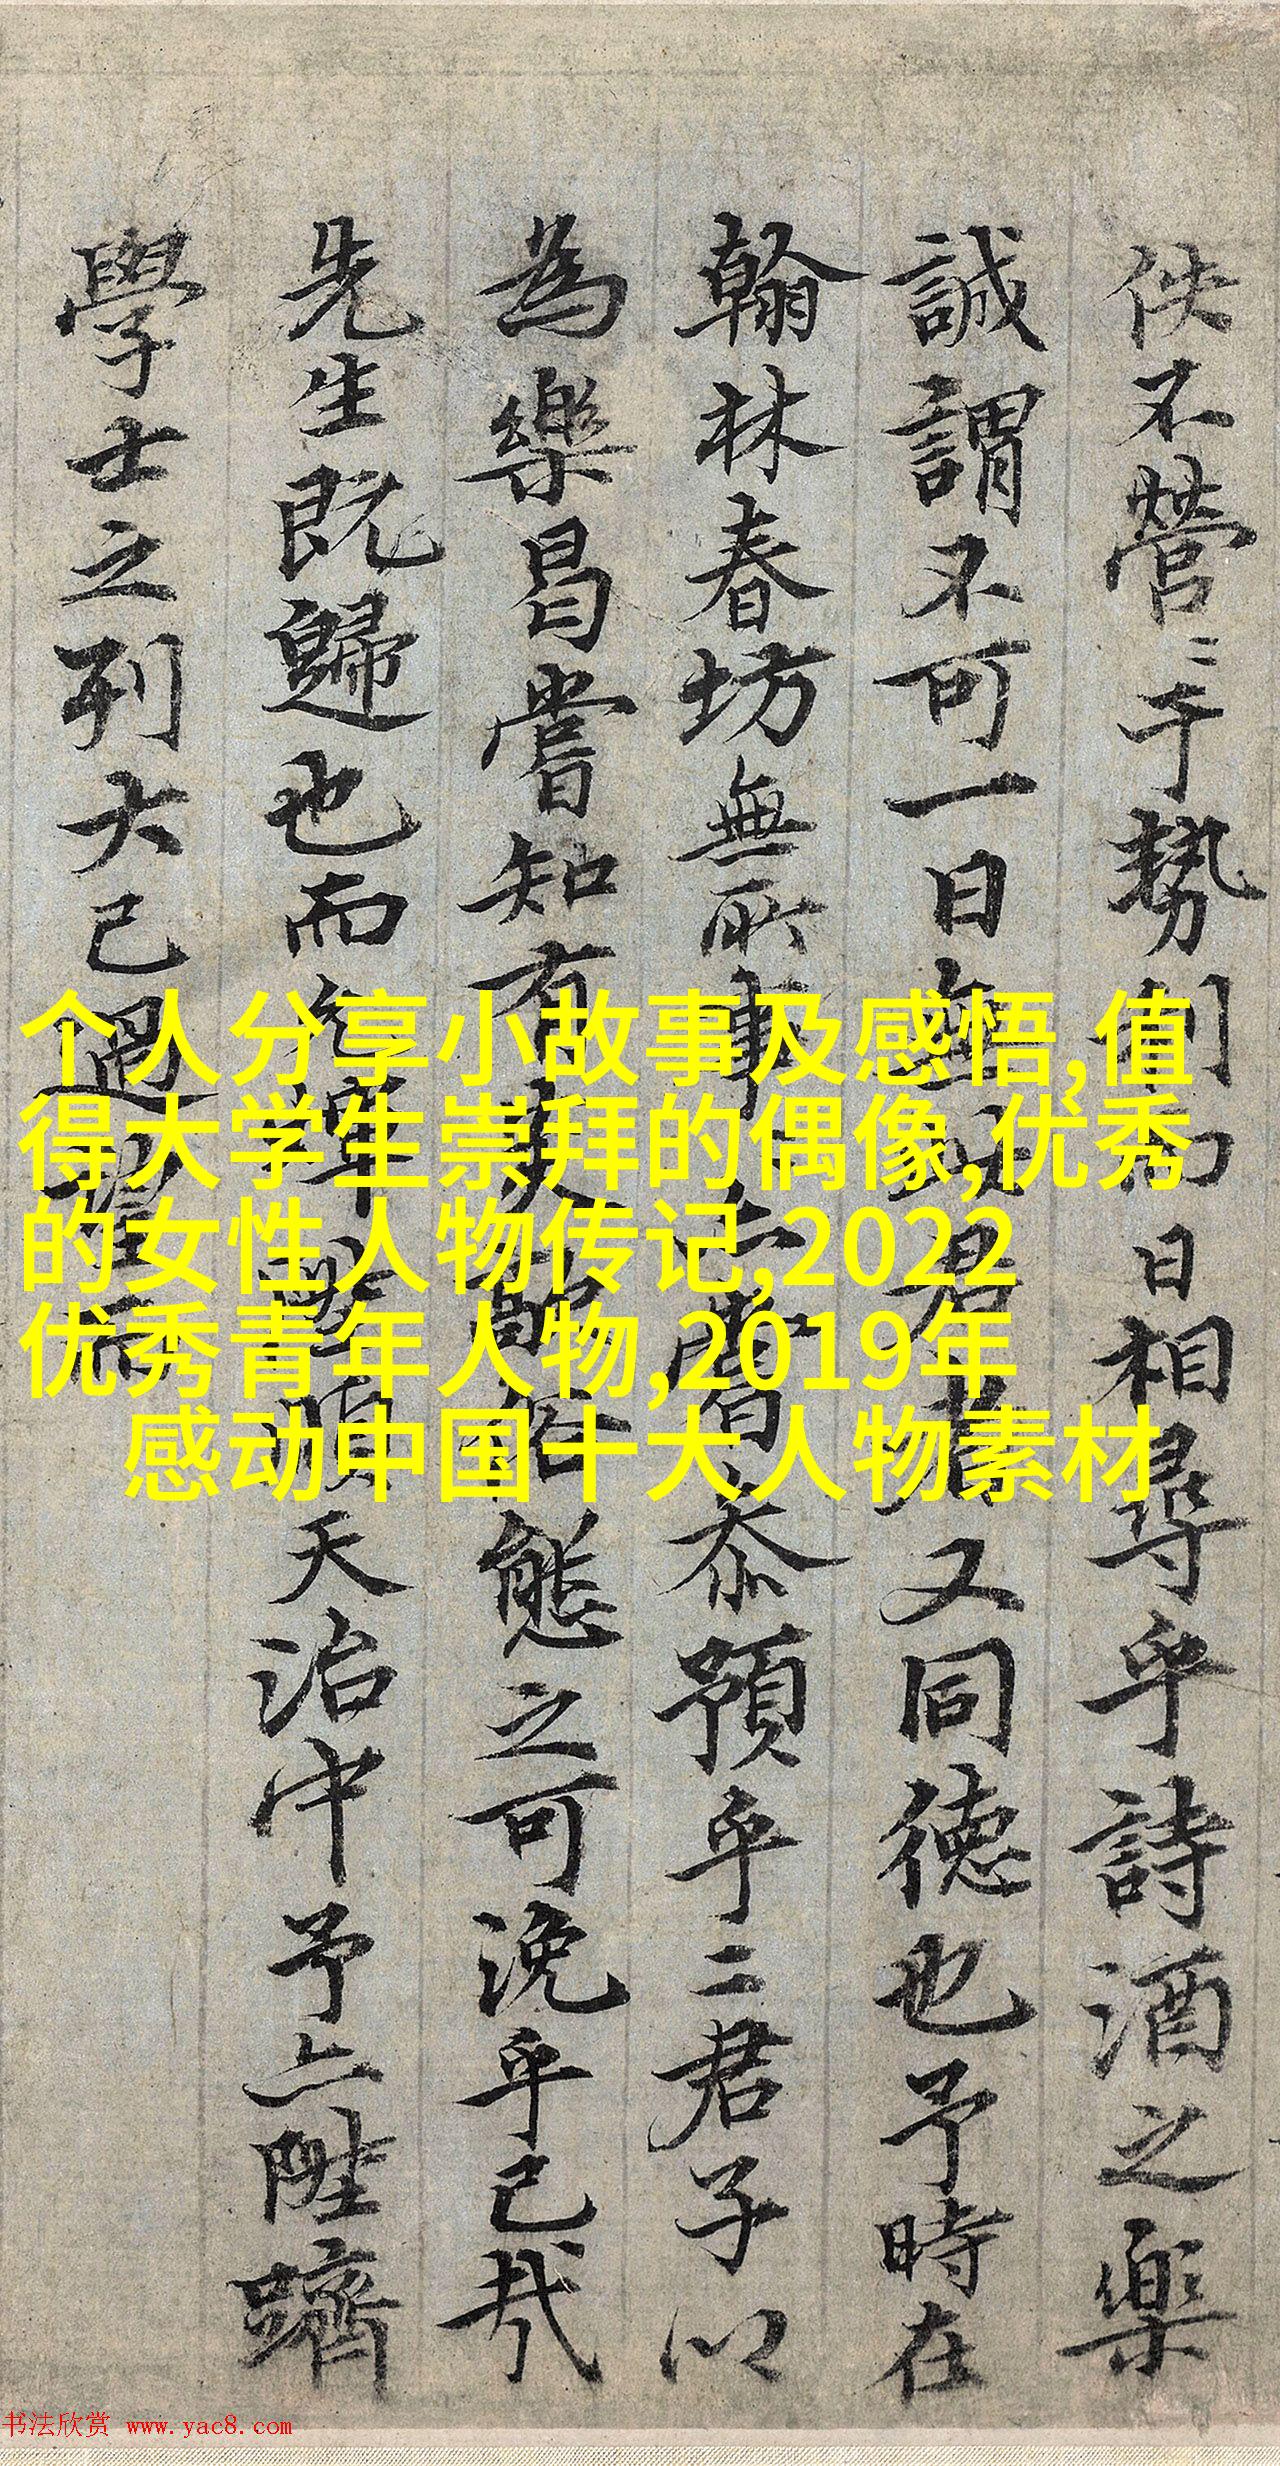 佚不營〻于勢利而日相尋乎詩酒之樂
誠謂不可一日無此君者又同德也予時在
翰林春坊無所事亦嘗忝預乎二君子以
為樂曷嘗知有俗態之可浼乎己哉
先生既歸也而順天治中予亦陞躋
學士之列大己過望而
个人分享小故事及感悟,值
得大学生崇拜的偶像,优秀
的女性人物传记,2022
优秀青年人物,2019年
感动中国十大人物素材
书法欣赏 www.yac8.com